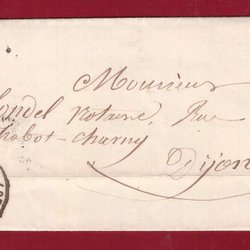 Monsieur
ondel Notaire, Rue
habot-charny
Dijon